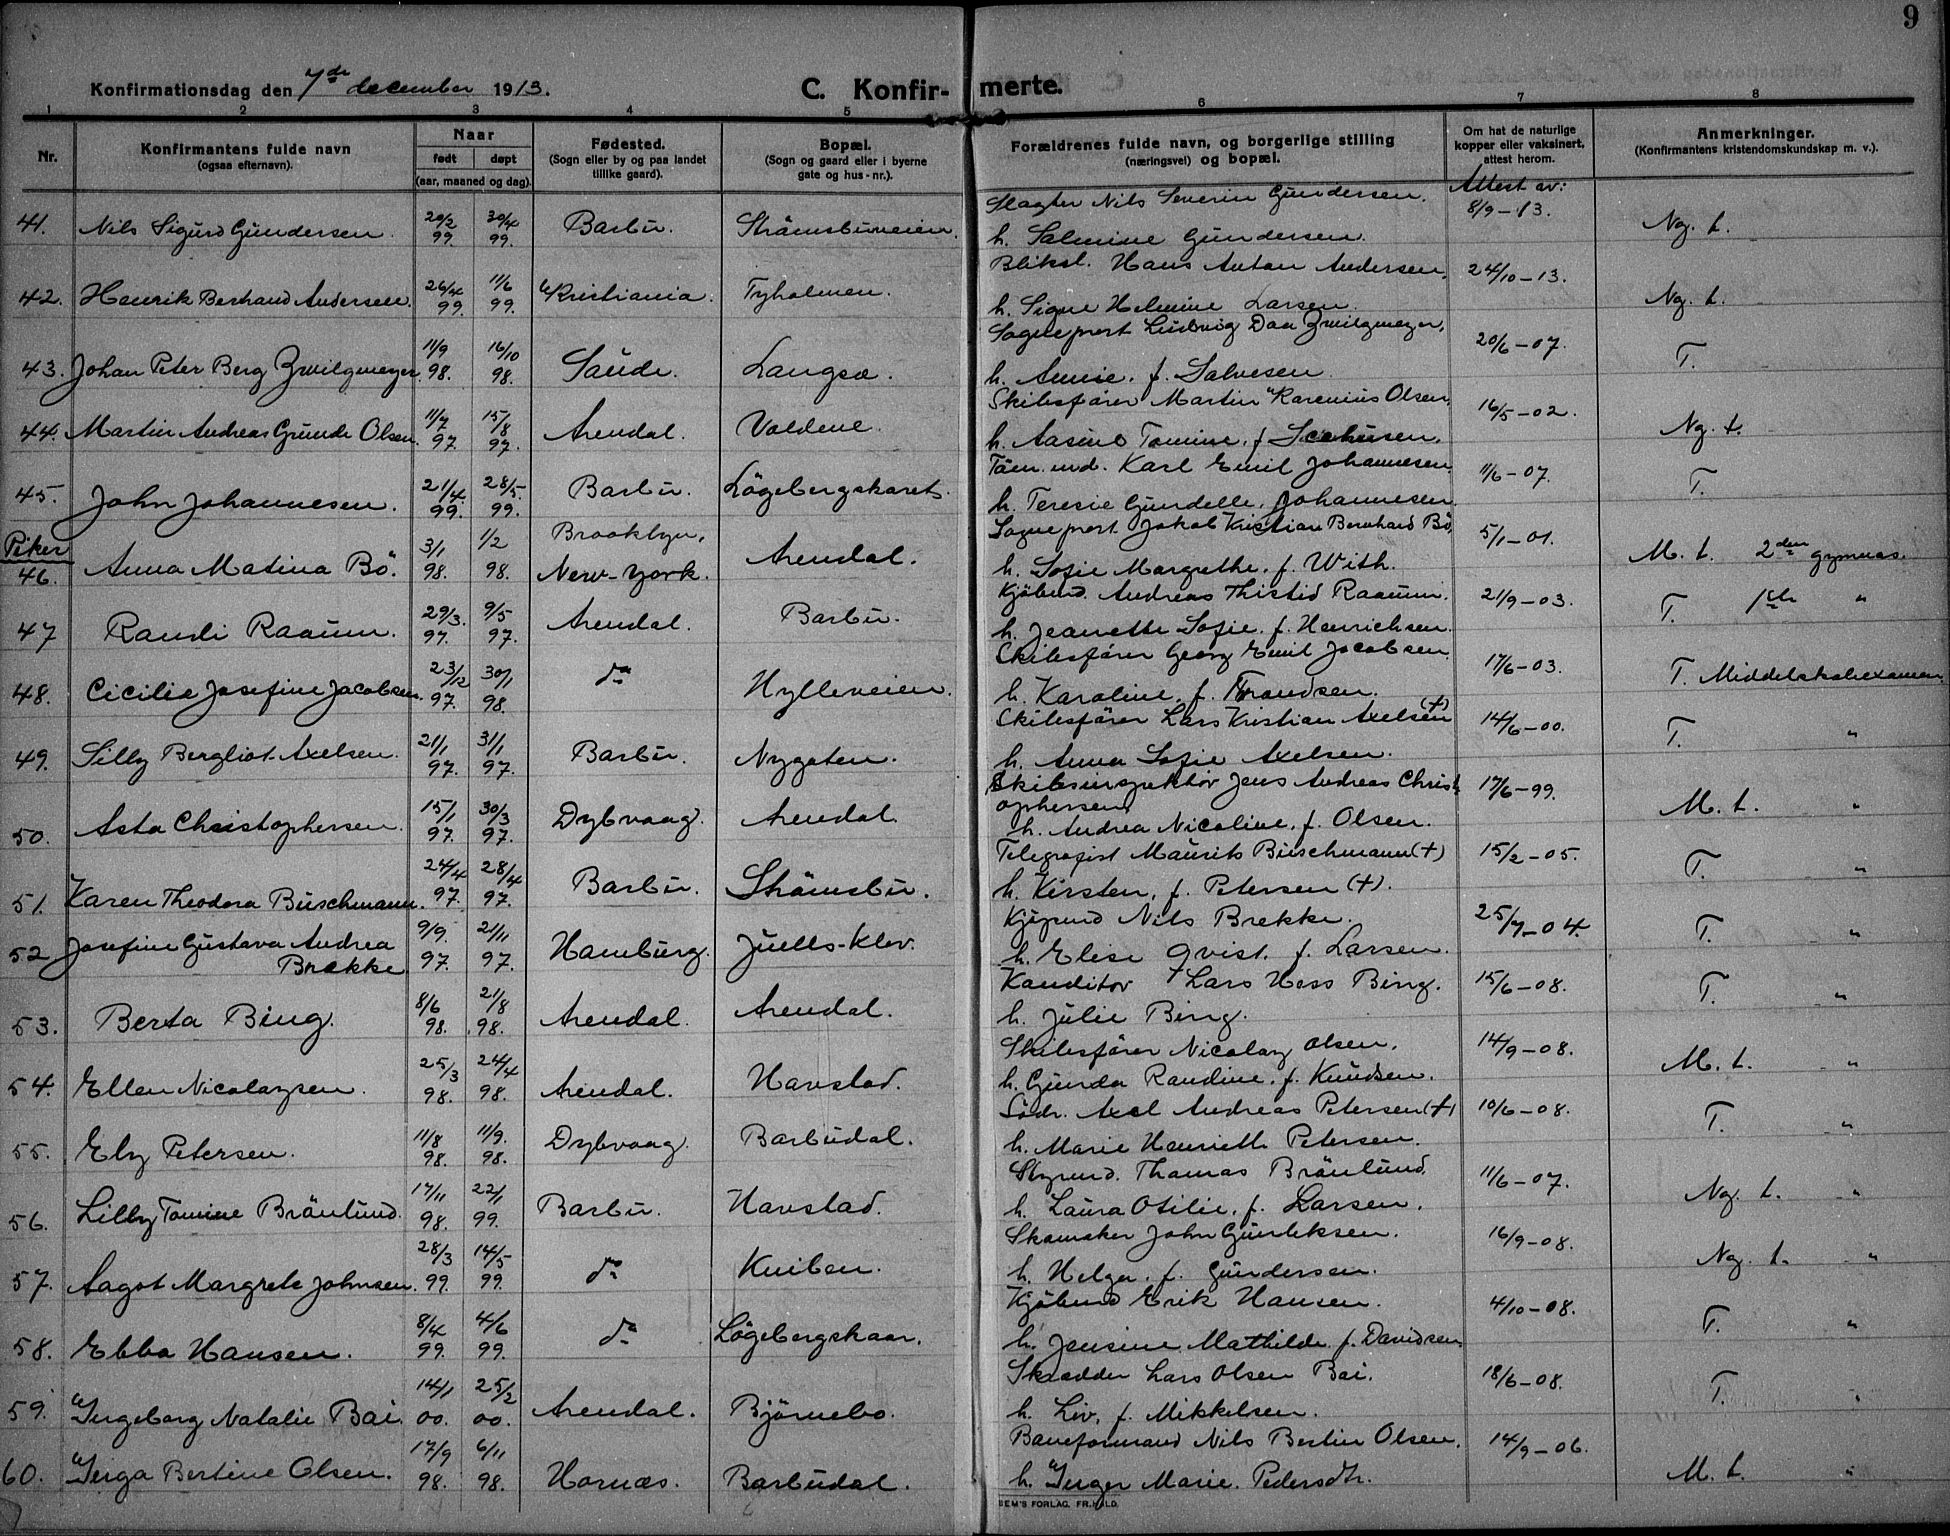 9
Konfirmationsdag den 7de december 1913.
C. Konfirmerte.
1 2 3 4 5 6 7 8
Nr.
Konfirmantens fulde navn
(ogsaa efternavn).
Naar
født døpt
(aar, maaned og dag).
Fødested.
(Sogn eller by og paa landet
tillike gaard).
Bopæl.
(Sogn og gaard eller i byerne
gate og hus-nr.).
Forældrenes fulde navn, og borgerlige stilling
(næringsvei) og bopæl.
Om hat de naturlige
kopper eller vaksinert,
attest herom.
Anmerkninger.
(Konfirmantens kristendomskundskap m. v.).
Attest av:
41. Nils Sigurd Gundersen. 20/2 99. 30/4 99. Barbu. Strømsbuveien. Slagter Nils Severin Gundersen. 8/9-13. Ng. t.
h. Salmine Gundersen.
42. Henrik Berhand Andersen. 26/4 99. 11/6 99. Kristiania. Tyholmen. Bliksl. Hans Anton Andersen, 24/10-13. Ng. t.
h. Signe Helmine Larsen.
43. Johan Peter Berg Zwilgmeyer. 11/9 98. 16/10 98. Saude. Langsæ. Sogneprest Ludvig Daa Zwilgmeyer, 20/6-07. T.
h. Annie. f. Salvesen.
44. Martin Andreas Grunde Olsen. 11/7 97. 15/8 97. Arendal. Voldene. Skibsfører Martin Karenius Olsen, 16/5-02. Ng. t.
h. Aasine Tomine, f.
45. John Johannesen. 21/4 99. 28/5 99. Barbu. Løgebergskaret. Tøm. md. Karl Emil Johannesen. 11/6-07. T.
h. Teresie Gundelle, Johannesen.
Piker
46. Anna Matina Bö. 3/1 98. 1/2 98. Brooklyn, New-York. Arendal. Sogneprest Jakob Kristian Bernhard Bö, 5/1-01. M. t. 2den gymnas.
h. Sofie Margrethe. f. With.
47 Randi Raaum. 29/3. 97. 9/5 97. Arendal. Barbu. Kjøbmd. Andreas Thistid Raaum. 21/9-03. T. 1ste "
h. Jeanette Sofie. f. Henrichsen.
48. Cicilie Josefine Jacobsen. 23/12 97. 30/1 98. do Hylleveien. Skibsfører Georg Emil Jacobsen. 17/6-03. T. Middelskoleexamen.
h. Karoline, f. Trondsen.
49. Silly Bergliot Axelsen. 21/1 97. 31/1 97. Barbu. Nygaten. Skibsfører Lars Kristian Axelsen (+) 14/6-00. T. "
h. Anna Sofie Axelsen.
50. Asta Christophersen. 15/1 97. 30/3 97. Dybvaag. Arendal. Skibsinspektør Jens Andreas Christ- 17/6-99. M. t. "
ophersen,
h. Andrea Nicoline, f. Olsen.
51. Karen Theodora Buschmann. 24/4 97. 28/4 97. Barbu. Strømsbu. Telegrafist Maurits Buschmann (+) 15/2-05. T. "
h. Kirsten, f. Petersen (+).
52 Josefine Gustava Andrea Brekke. 9/9. 97. 21/11 97. Hamburg. Juells-Klev. Kjøpmd Nils Brekke. 25/7-04. T. "
h. Elise Qvist. f. Larsen.
53. Berta Bing. 8/6 98. 21/8 98. Arendal. Arendal. Kanditor Lars Hess Bing. 15/6-08. T. "
h. Julie Bing.
54. Ellen Nicolaysen. 25/3 98. 24/4 98. Arendal. Havstad. Skibsfører Nicolay Olsen. 14/9-08. M. t. "
h. Gunda Randine. f. Knudsen.
55. Ely Petersen. 11/8 98. 11/9. 98. Dybvaag. Barbudal. Axel Andreas Petersen (+) 10/6-08. T. "
h. Marie Henriette Petersen.
56. Lilly Tomine Brönlund. 17/11 98. 22/1 99. Barbu. Havstad. Styrmd. Thomas Brönlund. 11/6-07. Ng. t. "
h. Laura Otilie, f. Larsen.
57. Aagot Margrete Johnsen. 28/3 99. 14/5 99. do Kniben. Skomaker John Gunleksen. 16/9-08. Ng. t. "
h. Helga. f. Gundersen.
58. Ebba Hansen. 8/4 99. 4/6 99. do Løgebergskaar. Kjøbmd Erik Hansen. 4/10-08. T. "
h. Jensine Mathilde f. Davidsen.
59. Ingeborg Natalie Bai. 14/1 00. 25/2 00. Arendal. Björnebo. Skrædder Lars Olsen Bai. 18/6-08. T. "
h. Liv, f. Mikkelsen.
60. Inga Bertine Olsen. 17/9 98. 6/11 98. Hornæs. Barbudal. Baneformand Nils Bertin Olsen. 14/9-06. M. t. "
h. Inger Marie. Pedersdtr.
SEM'S FORLAG, FR.HALD.